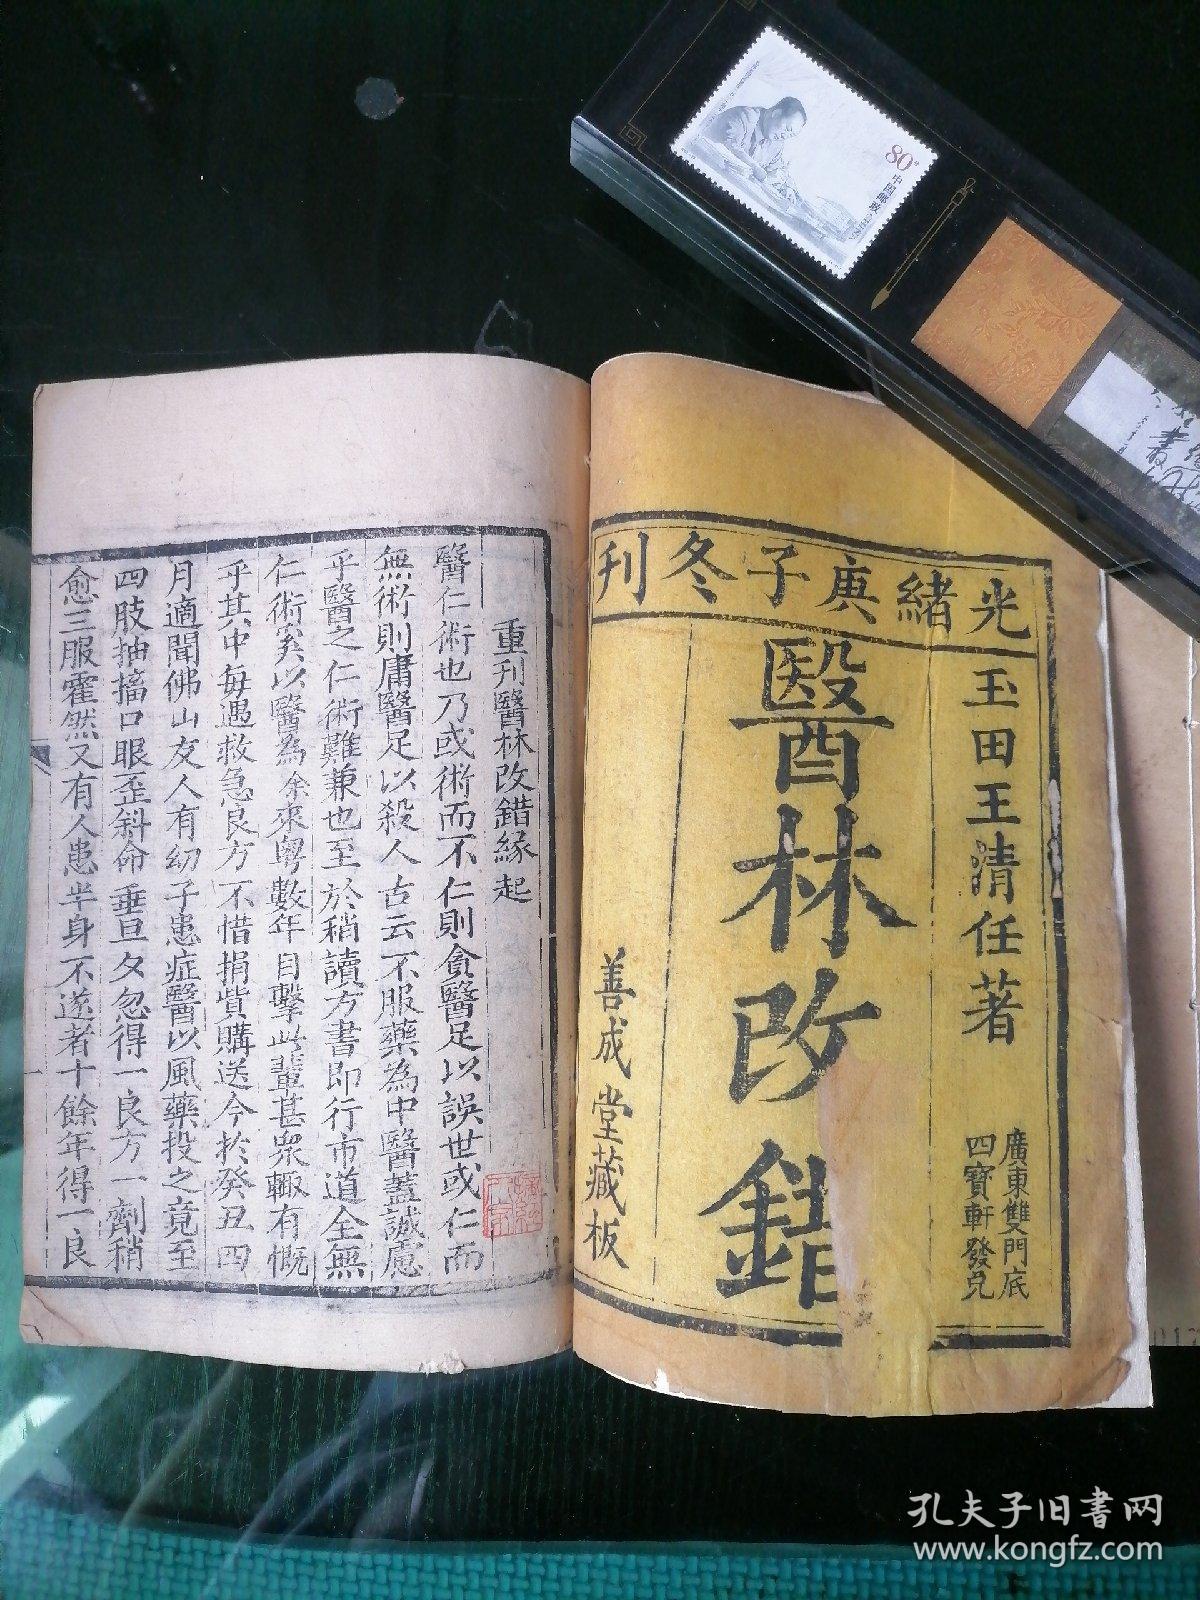 光緒庚子冬刊
玉田王清任著
廣東雙門底
四寶軒發兌
醫林改錯
善成堂藏板
重刊醫林改錯緣起
醫仁術也乃或術而不仁則貪醫足以誤世或仁而
無術則庸醫足以殺人古云不服藥為中醫蓋誠慮
乎醫之仁術難兼也至於稍讀方書即行市道全無
仁術矣以醫為余來粵數年目擊此輩甚衆輒有慨
乎其中每遇救急良方不惜捐貲購送今於癸丑四
月適聞佛山友人有幼子患症醫以風藥投之竟至
四肢抽搐口眼歪斜命垂旦夕忽得一良方一劑稍
愈三服霍然又有人患半身不遂者十餘年得一良
80分
中国邮政
孔夫子旧书网
www.kongfz.com